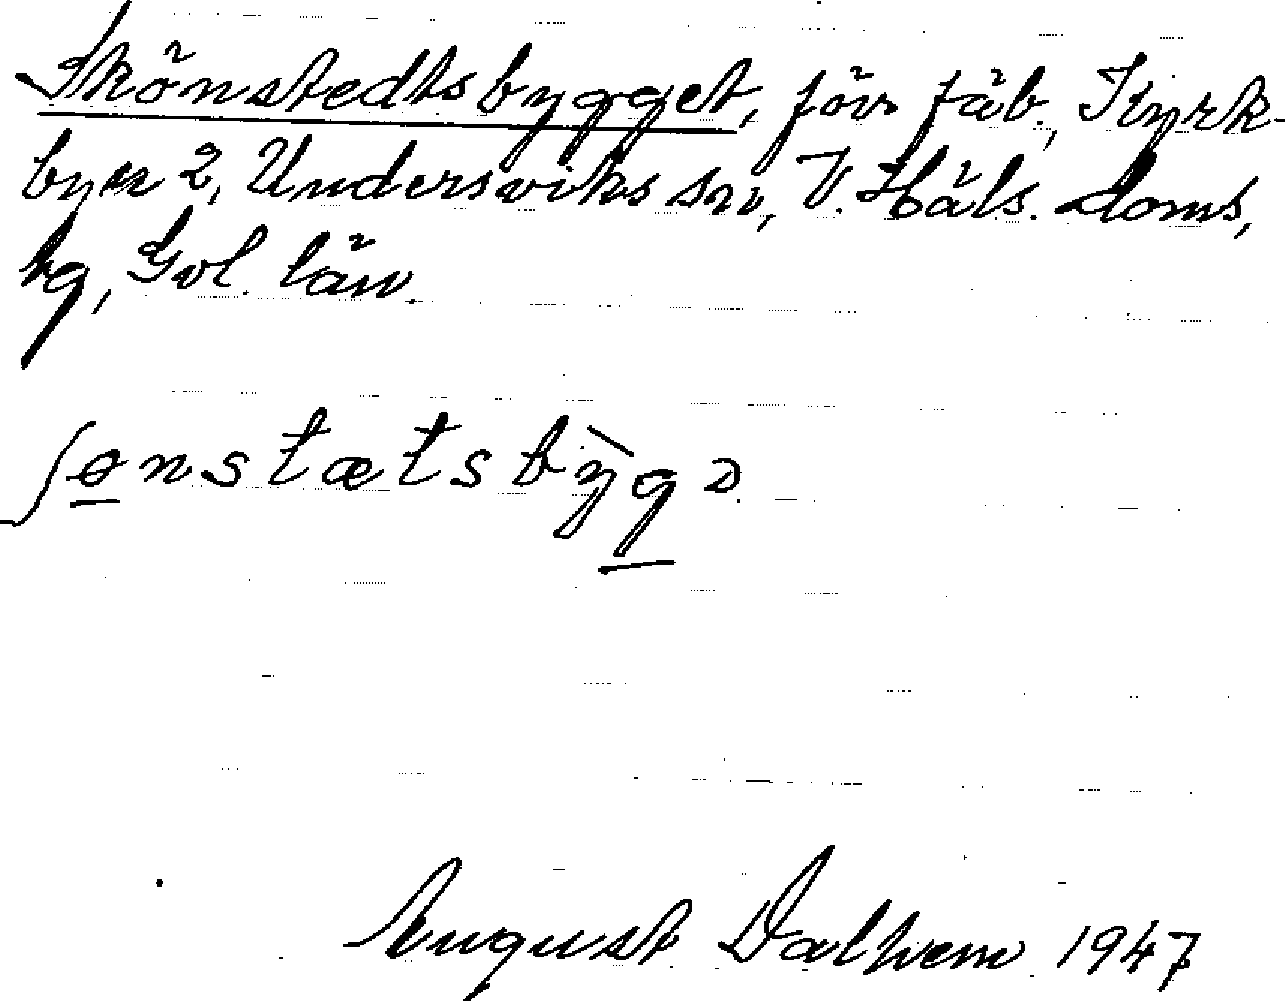 Skönstedtsbygget, förr fäb., Kyrk-
byn 2, Undersviks sn, V. Häls. doms,
hg, Gvl. län.
ʃɵnstætsbỳgɔ
August Dalhem 1947